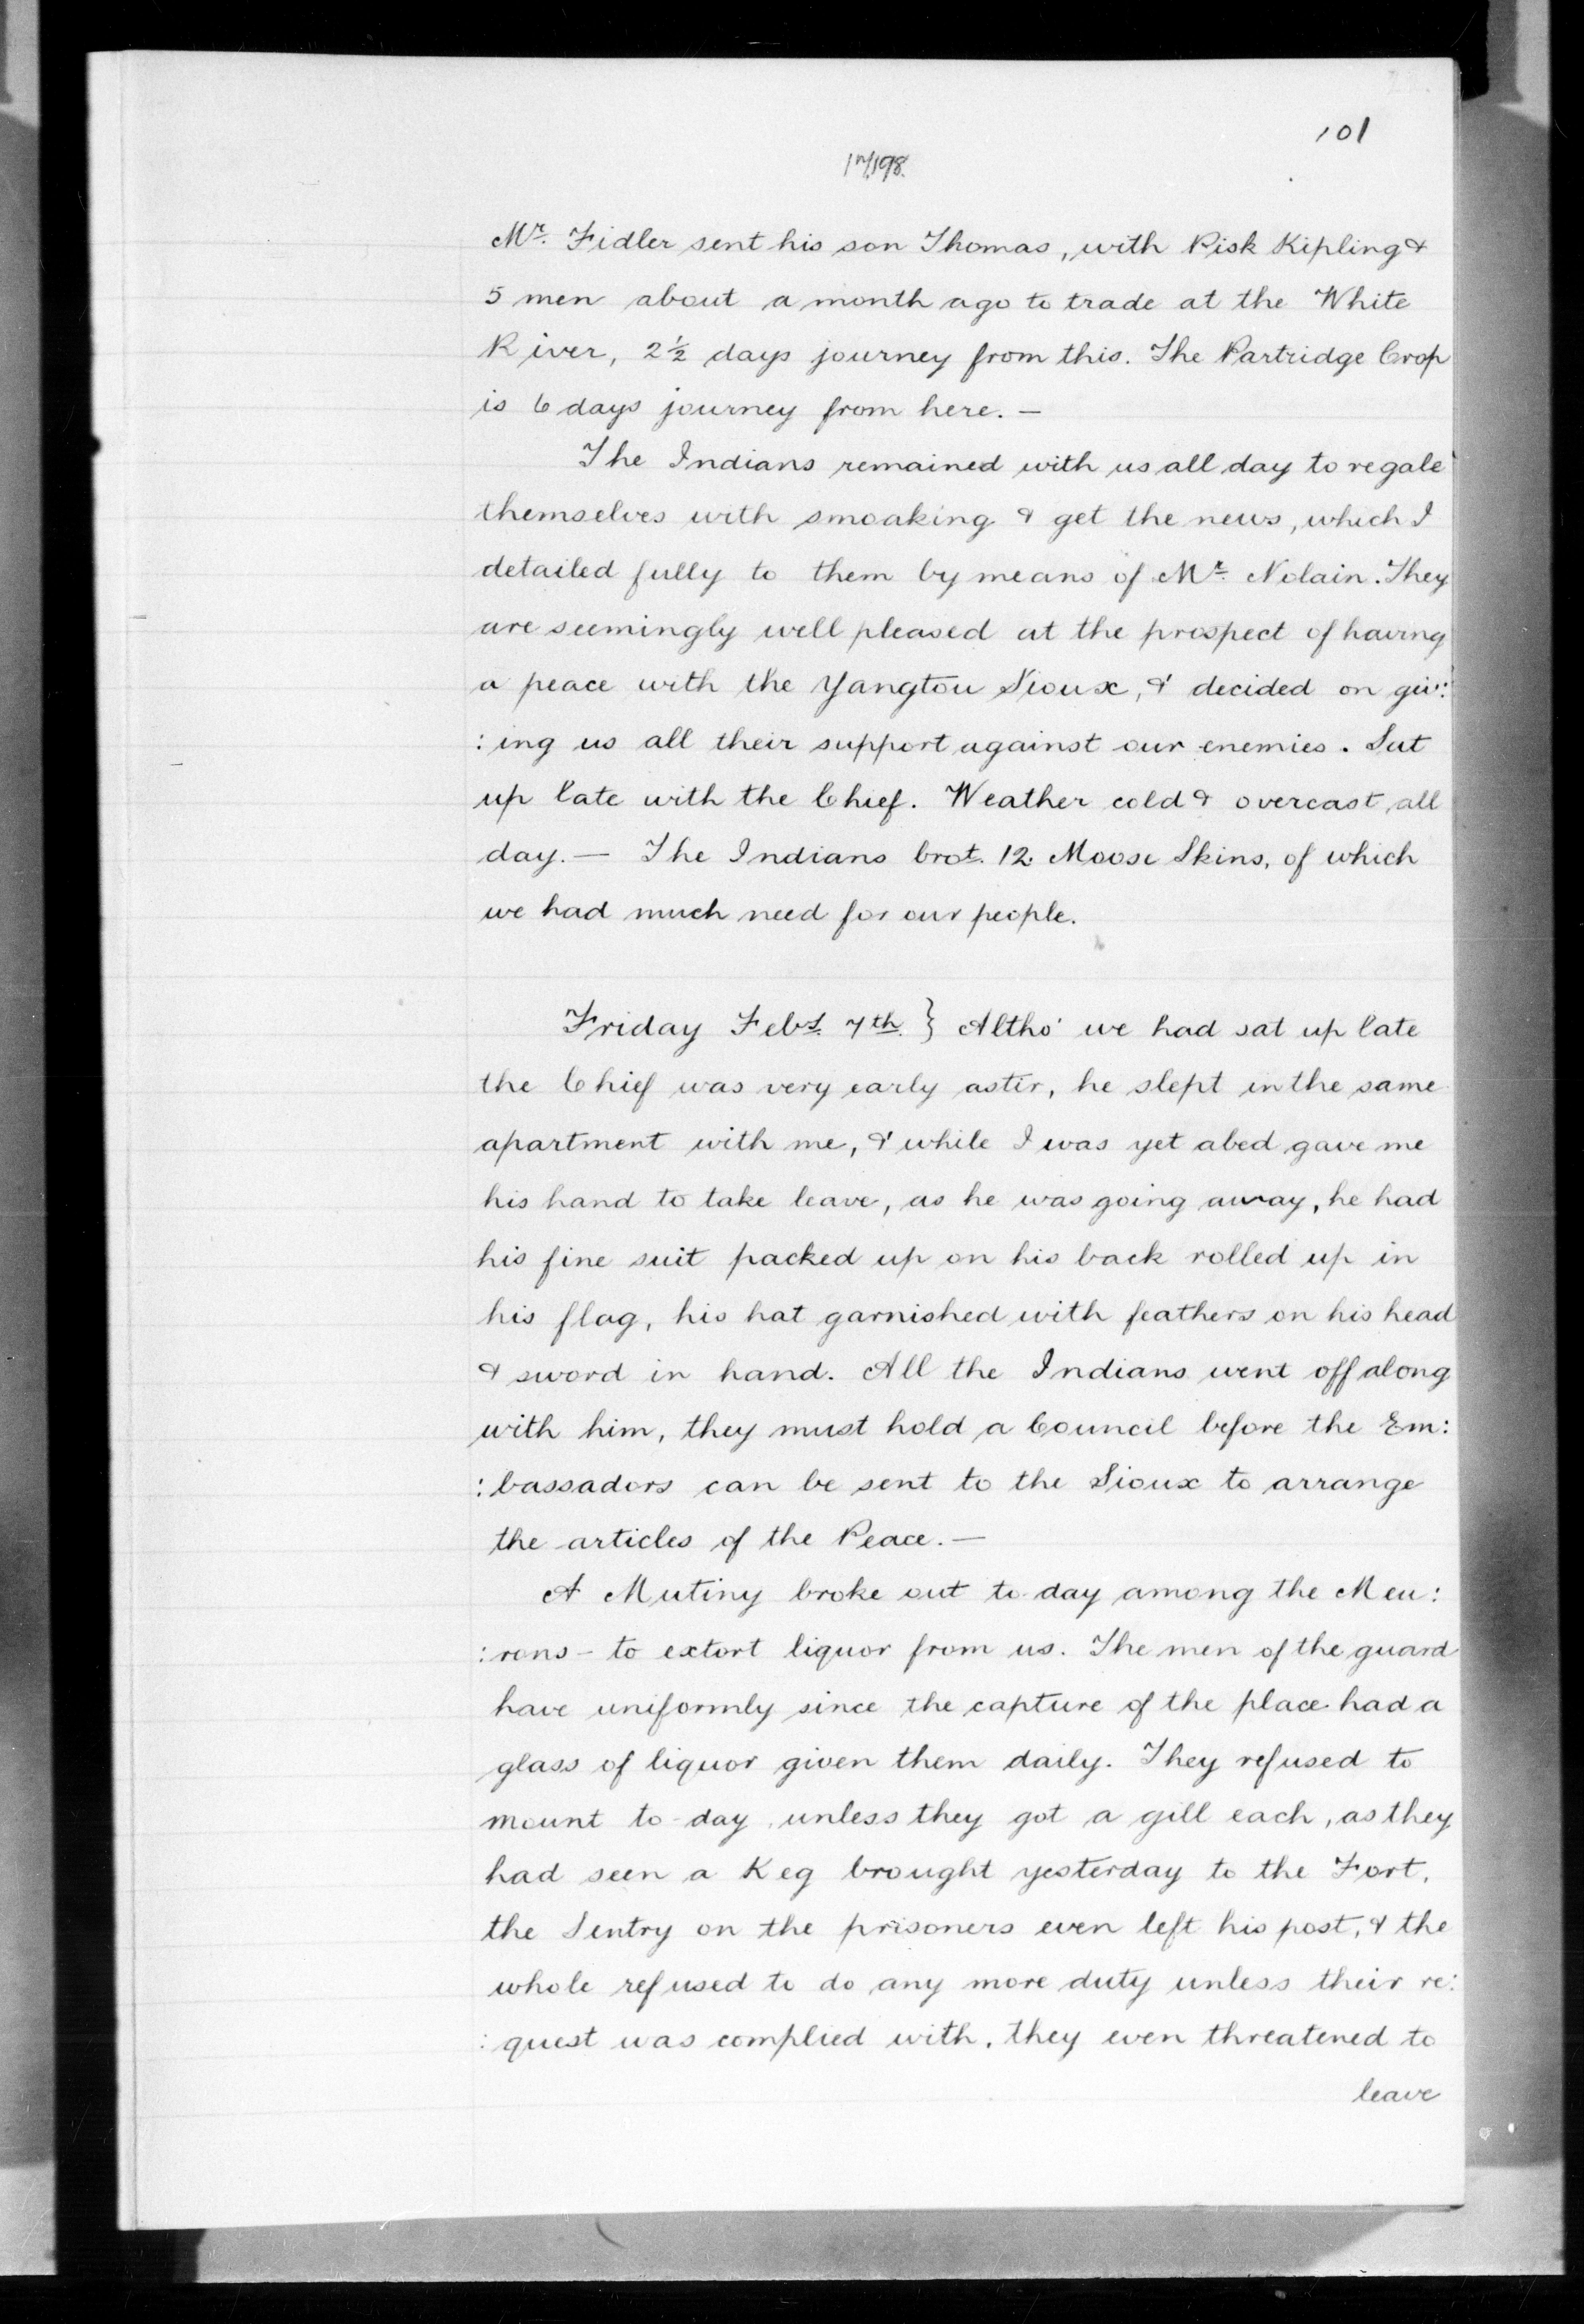 101
17,198.
Mr. Fidler sent his son Thomas, with Pisk Kipling &
5 men about a month ago to trade at the White
River, 2½ days journey from this. The Partridge Crop
is 6 days journey from here. —
The Indians remained with us all day to regale
themselves with smoaking & get the news, which I
detailed fully to them by means of Mr. Nolain. They
are seemingly well pleased at the prospect of having
a peace with the Yangtou Sioux, & decided on giv:
:ing us all their support against our enemies. Sat
up late with the Chief. Weather cold & overcast all
day. — The Indians brot. 12 Moose Skins, of which
we had much need for our people.
Friday Feby. 7th. } Altho' we had sat up late
the Chief was very early astir, he slept in the same
apartment with me, & while I was yet abed gave me
his hand to take leave, as he was going away, he had
his fine suit packed up on his back rolled up in
his flag, his hat garnished with feathers on his head
& sword in hand. All the Indians went off along
with him, they must hold a Council before the Em:
:bassadors can be sent to the Sioux to arrange
the articles of the Peace. —
A Mutiny broke out to-day among the Meu:
:rons - to extort liquor from us. The men of the guard
have uniformly since the capture of the place had a
glass of liquor given them daily. They refused to
mount to-day unless they got a gill each, as they
had seen a Keg brought yesterday to the Fort,
the Sentry on the prisoners even left his post, & the
whole refused to do any more duty unless their re:
:quest was complied with, they even threatened to
leave